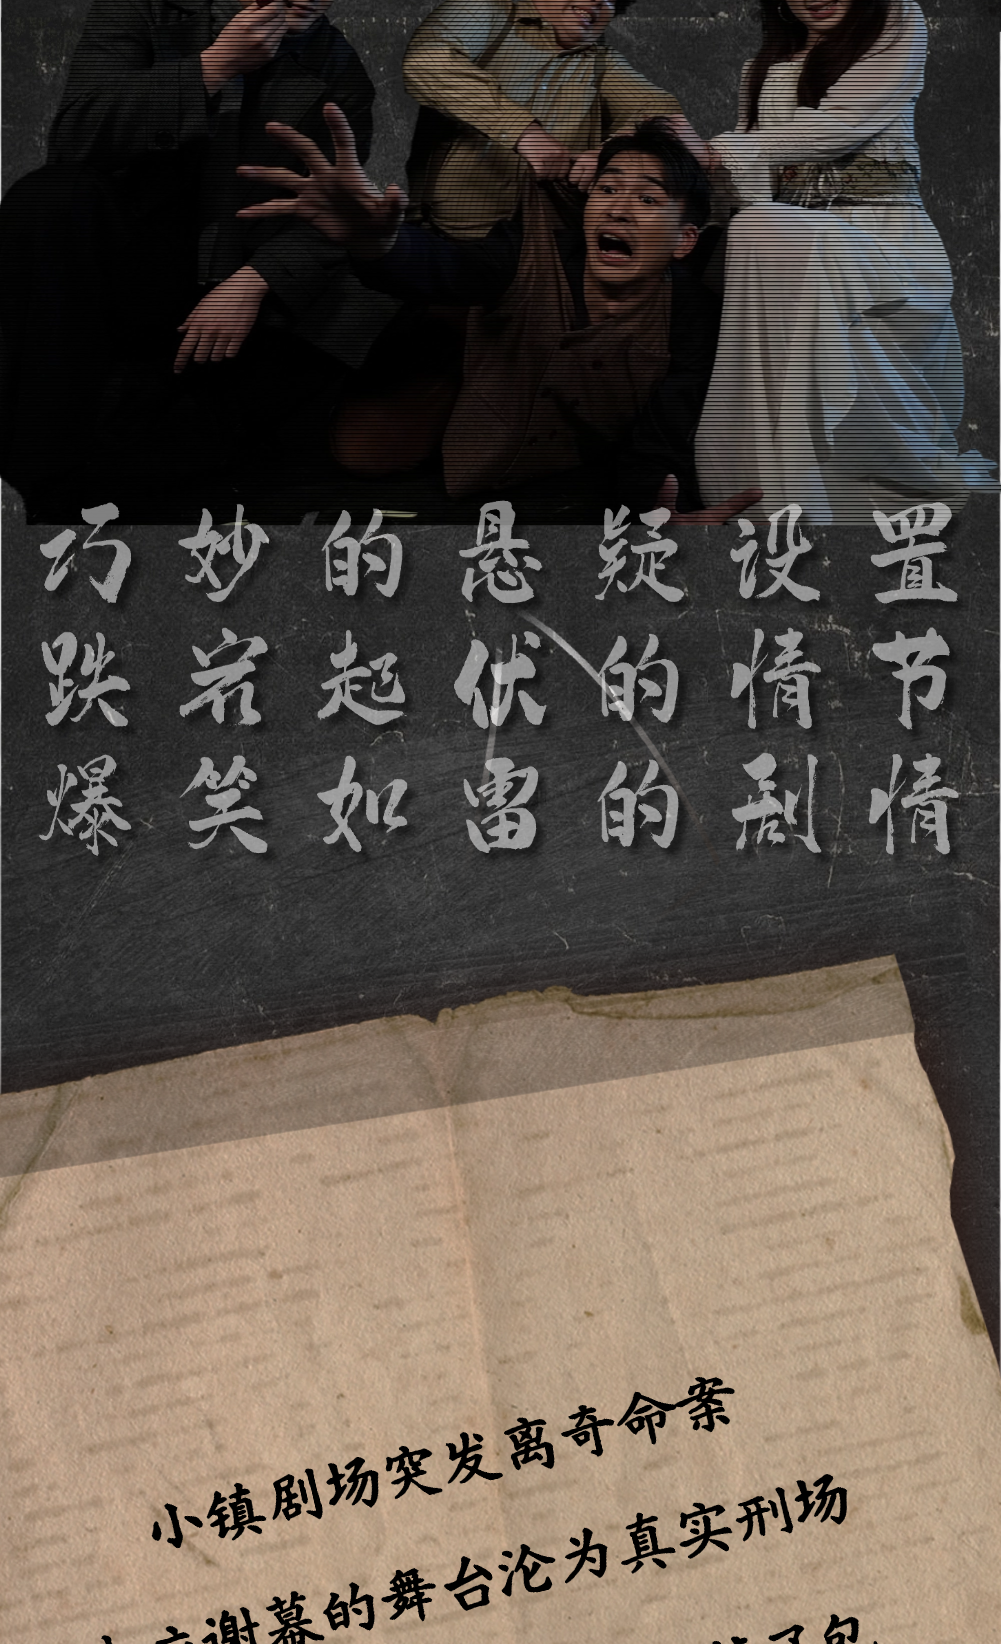 巧妙的悬疑设置
跌宕起伏的情节
爆笑如雷的剧情
小镇剧场突发离奇命案
谢幕的舞台沦为真实刑场